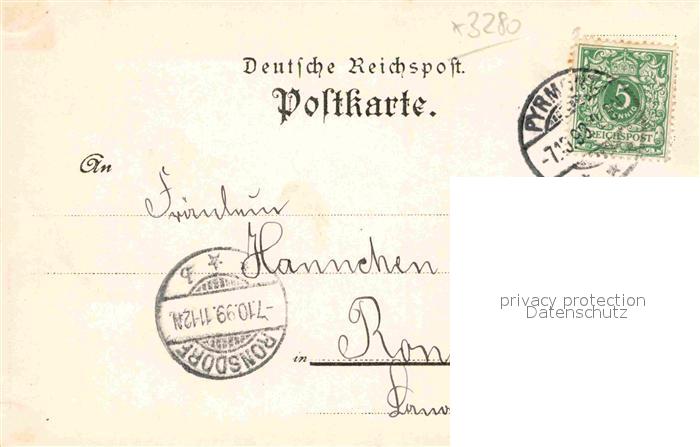 *3280
Deutsche Reichspost.
Postkarte.
5
PFENNIG
REICHSPOST
PYRMO
-7.10.99
An
Fräulein
Hannchen
-7.10.99.11-12N.
RONSDORF
in Ron
privacy protection
Datenschutz